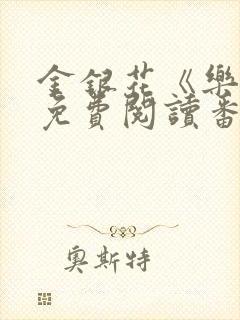 金銀花《樂
免費閱讀番
奧斯特